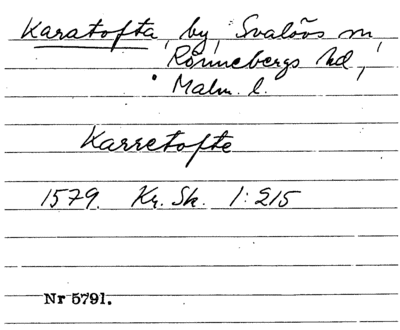 Karatofta, by, Svalövs sn,
Rönnebergs hd,
Malm. l.
Karretofte
1579. Kr. Sk. 1:215
Nr 5791.